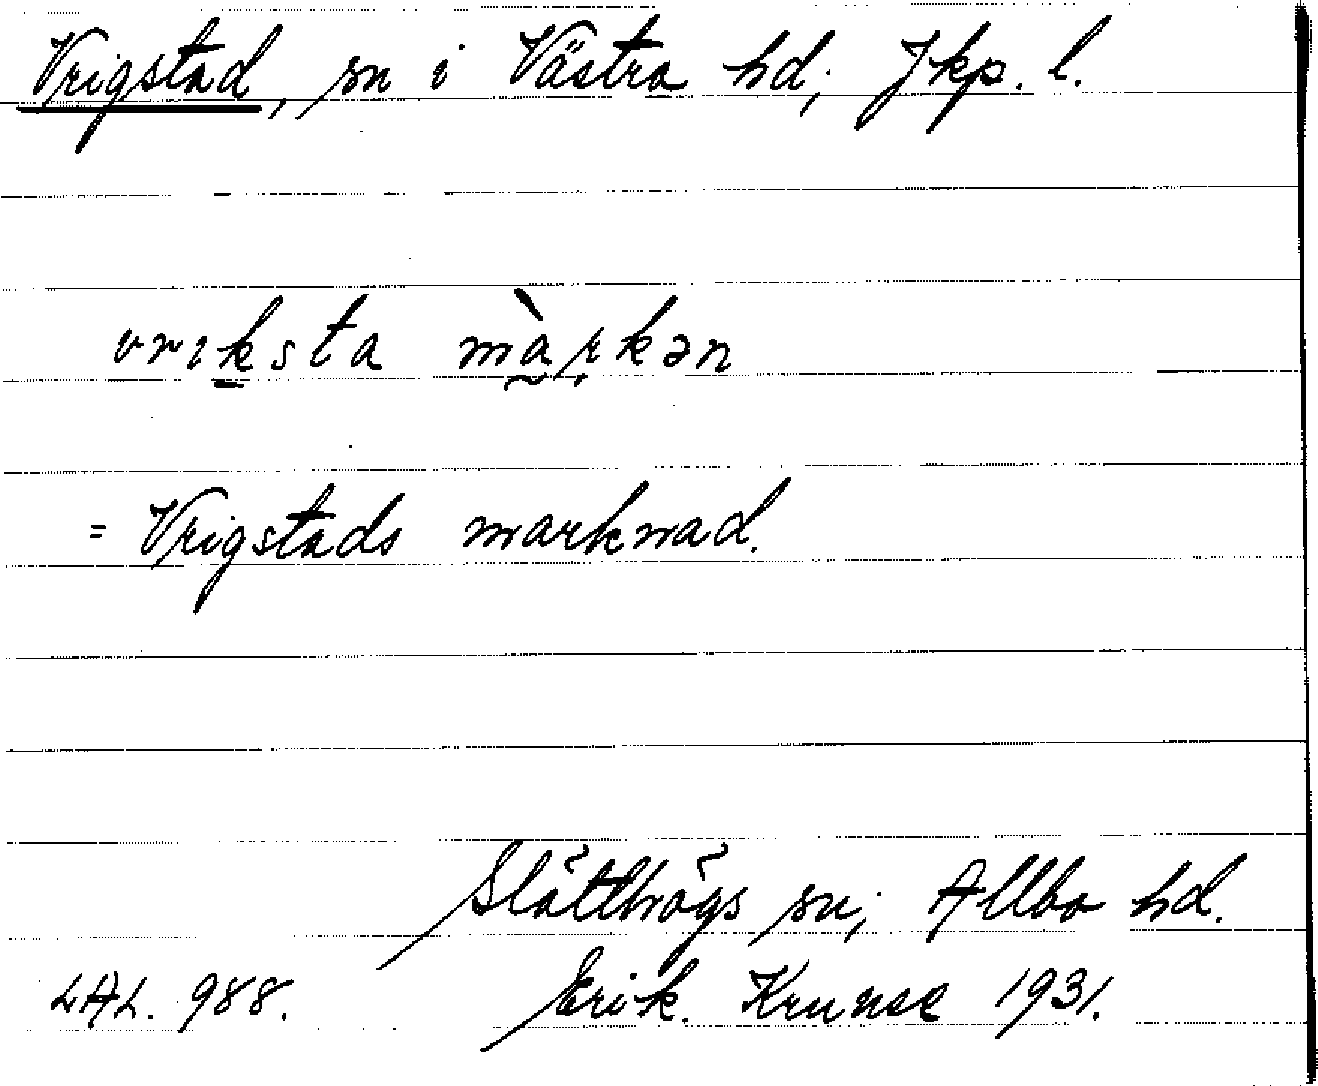 Vrigstad, sn i Västra hd; Jkp. l.
vriksta màrkən
= Vrigstads marknad.
Slätthögs sn; Allbo hd.
LAL. 988. Erik. Krunse 1931.